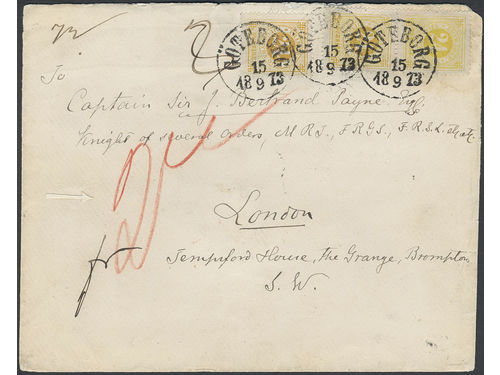 GÖTEBORG
15
18 9 73
GÖTEBORG
15
18 9 73
GÖTEBORG
15
18 9 73
24
To
Captain Sir J. Bertrand Payne
Knight of several Orders, M.R.I., F.R.G.S., F.R.S.L. etc. etc.
London
fr Tempsford House, the Grange, Brompton,
S. W.